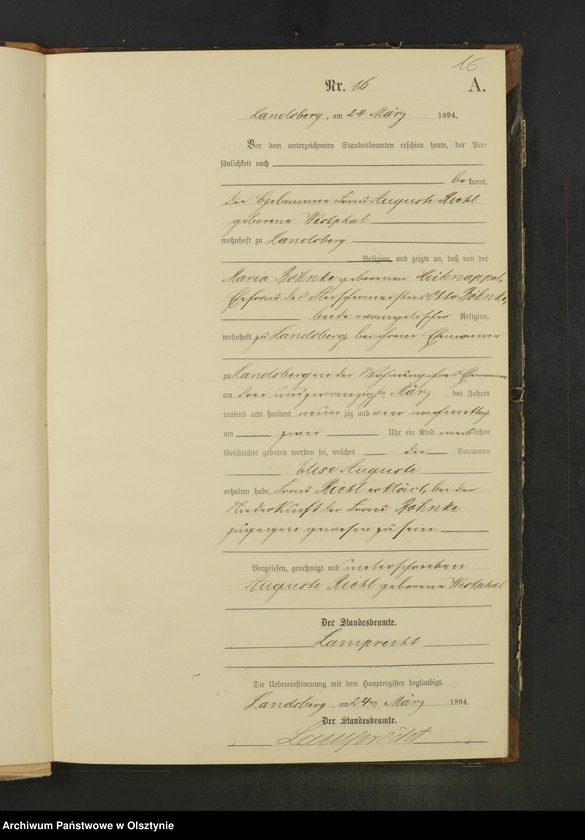 16
Nr. 16 A.
Landsberg, am 24 März 1894.
Vor dem unterzeichneten Standesbeamten erschien heute, der Per-
sönlichkeit nach
be kannt,
die Hebamme Frau Auguste Riehl
geborene Westphal
wohnhaft zu Landsberg
Religion, und zeigte an, daß von der
Maria Böhnke geborenen
Ehefrau des Fleischermeisters Otto Böhnke,
beide evangelischer Religion,
wohnhaft zu Landsberg, bei ihrem Ehemanne
zu Landsberg in der Wohnung ihres Ehemannes
am drei und zwanzigsten März des Jahres
tausend acht hundert neun zig und vier nachmittags
um zwei Uhr ein Kind weiblichen
Geschlechts geboren worden sei, welches die Vornamen
Elise Auguste
erhalten habe. Frau Riehl erklärt, bei der
Niederkunft der Frau Böhnke
zugegen gewesen zu sein.
Vorgelesen, genehmigt und unterschrieben
Auguste Riehl geborene Westphal
Der Standesbeamte.
Lamprecht
Die Uebereinstimmung mit dem Hauptregister beglaubigt.
Landsberg, am 24ten März 1894.
Der Standesbeamte.
Lamprecht
Archiwum Państwowe w Olsztynie